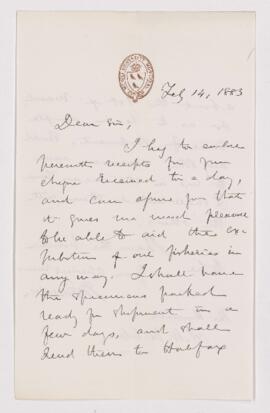 Feb 14, 1883
Dear Sir,
I beg to enclose
herewith receipts for your
cheque received to-day,
and can assure you that
it gives me much pleasure
to be able to aid the ex-
hibition of our fisheries in
any way. I shall have
the specimens packed
ready for shipment in a
few days, and shall
send them to Halifax